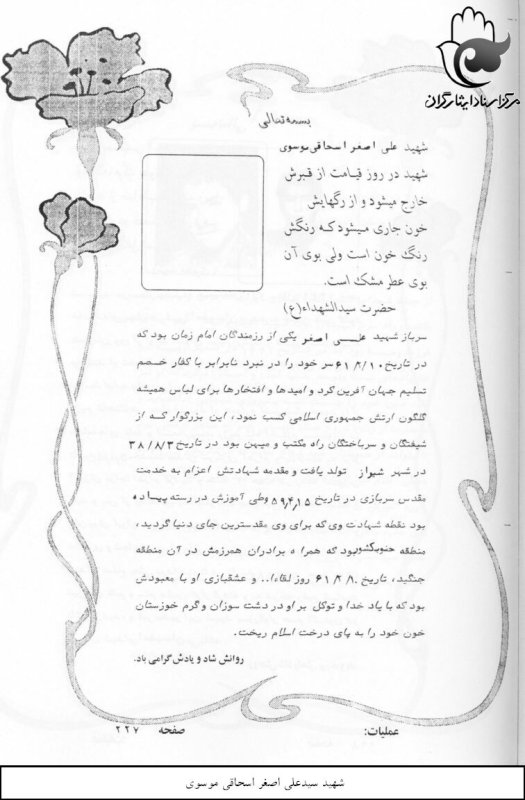 مرکز اسناد ایثارگران
بسمه تعالی
شهید علی اصغر اسحاقی موسوی
شهید در روز قیامت از قبرش
خارج میشود و از رگهایش
خون جاری میشود که رنگش
رنگ خون است ولی بوی آن
بوی عطر مشک است.
حضرت سیدالشهداء(ع)
سرباز شهید علی اصغر یکی از رزمندگان امام زمان بود که
در تاریخ ۶۱/۲/۱۰ سر خود را در نبرد نابرابر با کفار خصم
تسلیم جهان آفرین کرد و امیدها و افتخارها برای لباس همیشه
گلگون ارتش جمهوری اسلامی کسب نمود، این بزرگوار که از
شیفتگان و سرباختگان راه مکتب و میهن بود در تاریخ ۳۸/۸/۳
در شهر شیراز تولد یافت و مقدمه شهادتش اعزام به خدمت
مقدس سربازی در تاریخ ۵۹/۴/۱۵ وطی آموزش در رسته پیاده
بود نقطه شهادت وی که برای وی مقدسترین جای دنیا گردید،
منطقه جنوبکشور بود که همراه برادران همرزمش در آن منطقه
جنگید، تاریخ ۶۱/۲/۱۰ روز لقاءا.. و عشقبازی او با معبودش
بود که با یاد خدا و توکل بر او در دشت سوزان و گرم خوزستان
خون خود را به پای درخت اسلام ریخت.
روانش شاد و یادش گرامی باد.
عملیات: صفحه ۲۲۷
شهید سیدعلی اصغر اسحاقی موسوی